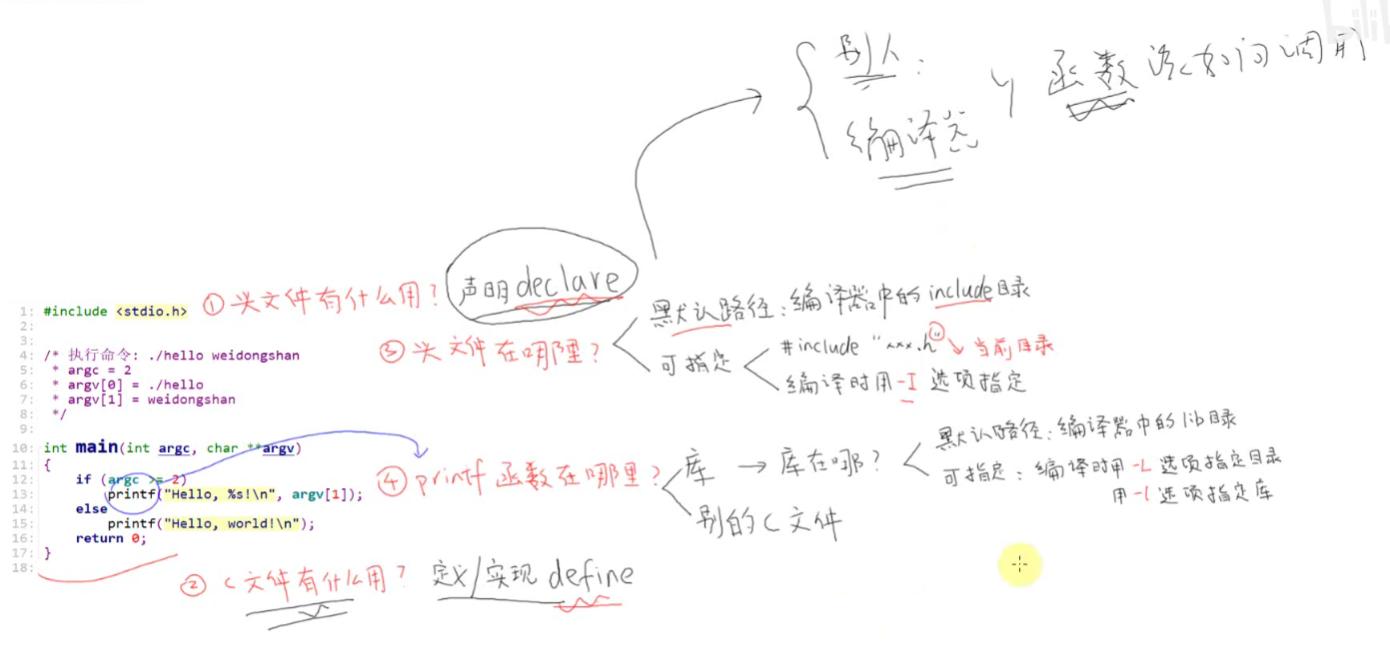 bilibili
别人：
编译器
函数该如何调用
声明declare
① 头文件有什么用？
③ 头文件在哪里？
默认路径：编译器中的include目录
可指定
#include "xxx.h" 当前目录
编译时用-I选项指定
1: #include <stdio.h>
2:
3:
4: /* 执行命令: ./hello weidongshan
5:  * argc = 2
6:  * argv[0] = ./hello
7:  * argv[1] = weidongshan
8:  */
9:
10: int main(int argc, char **argv)
11: {
12:     if (argc >= 2)
13:         printf("Hello, %s!\n", argv[1]);
14:     else
15:         printf("Hello, world!\n");
16:     return 0;
17: }
18:
④ printf函数在哪里？
库 → 库在哪？
默认路径：编译器中的lib目录
可指定：编译时用-L选项指定目录
用-l选项指定库
别的C文件
② C文件有什么用？ 定义/实现 define